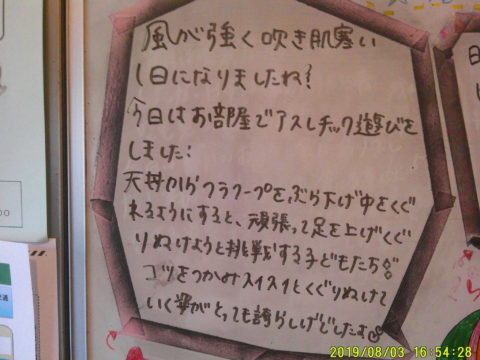 風が強く吹き肌寒い
1日になりましたね!
今日はお部屋でアスレチック遊びを
しました:
天井からフラフープをぶら下げ中をくぐ
れるようにすると、頑張って足を上げくぐ
りぬけようと挑戦する子どもたち
コツをつかみスイスイとくぐりぬけて
いく姿がとっても誇らしげでした
2019/08/03 16:54:28